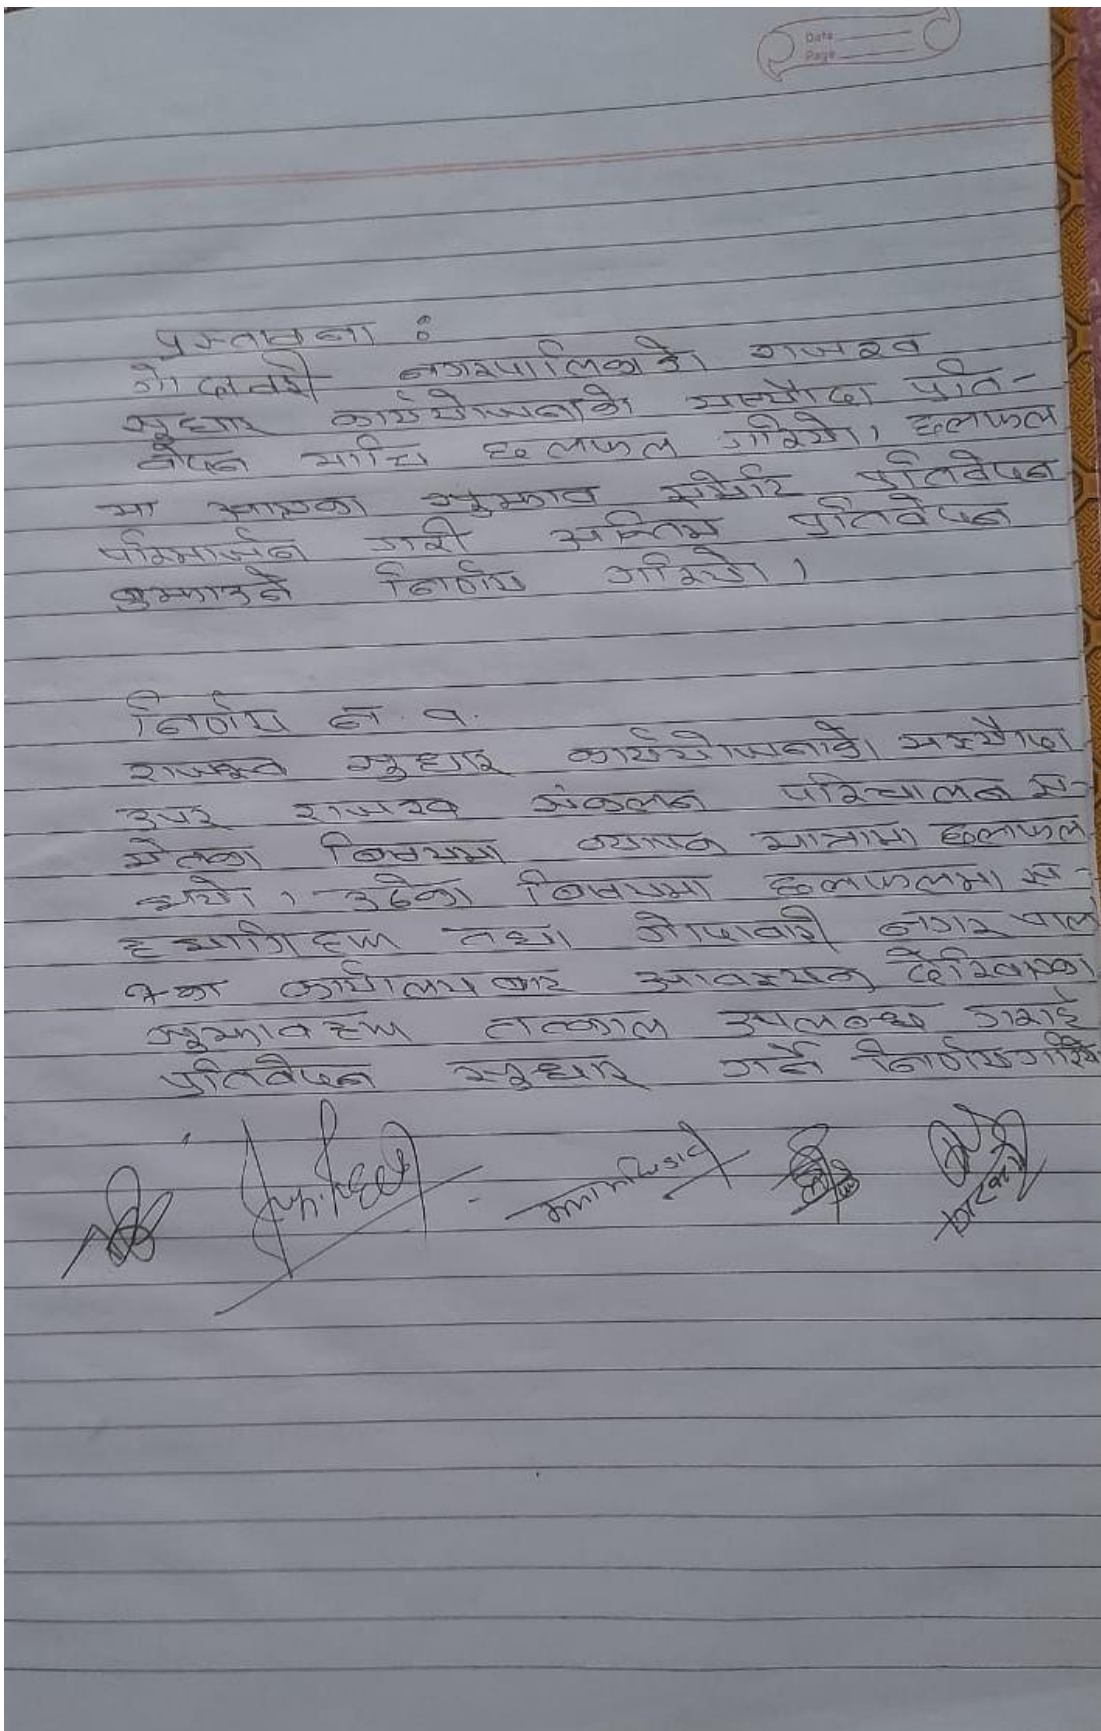 Date
Page
प्रस्तावना :
गोदावरी नगरपालिकाको राजस्व
सुधार कार्ययोजनाको मस्यौदा प्रति-
वेदन माथि छलफल गरियो। छलफल
मा आएका सुझाव समेटि प्रतिवेदन
परिमार्जन गरी अन्तिम प्रतिवेदन
बुझाउने निर्णय गरियो।
निर्णय नं. १.
राजस्व सुधार कार्ययोजनाको मस्यौदा
उपर राजस्व संकलन परिचालन स-
मेतका बिषयमा व्यापक मात्रामा छलफल
भयो। उठेका बिषयमा छलफलमा स-
हभागिहरू तथा गोदावरी नगर पालि
काका कार्यालयबाट आवश्यक देखिएका
सुझावहरू तत्काल उपलब्ध गराई
प्रतिवेदन सुधार गर्ने निर्णय गरियो